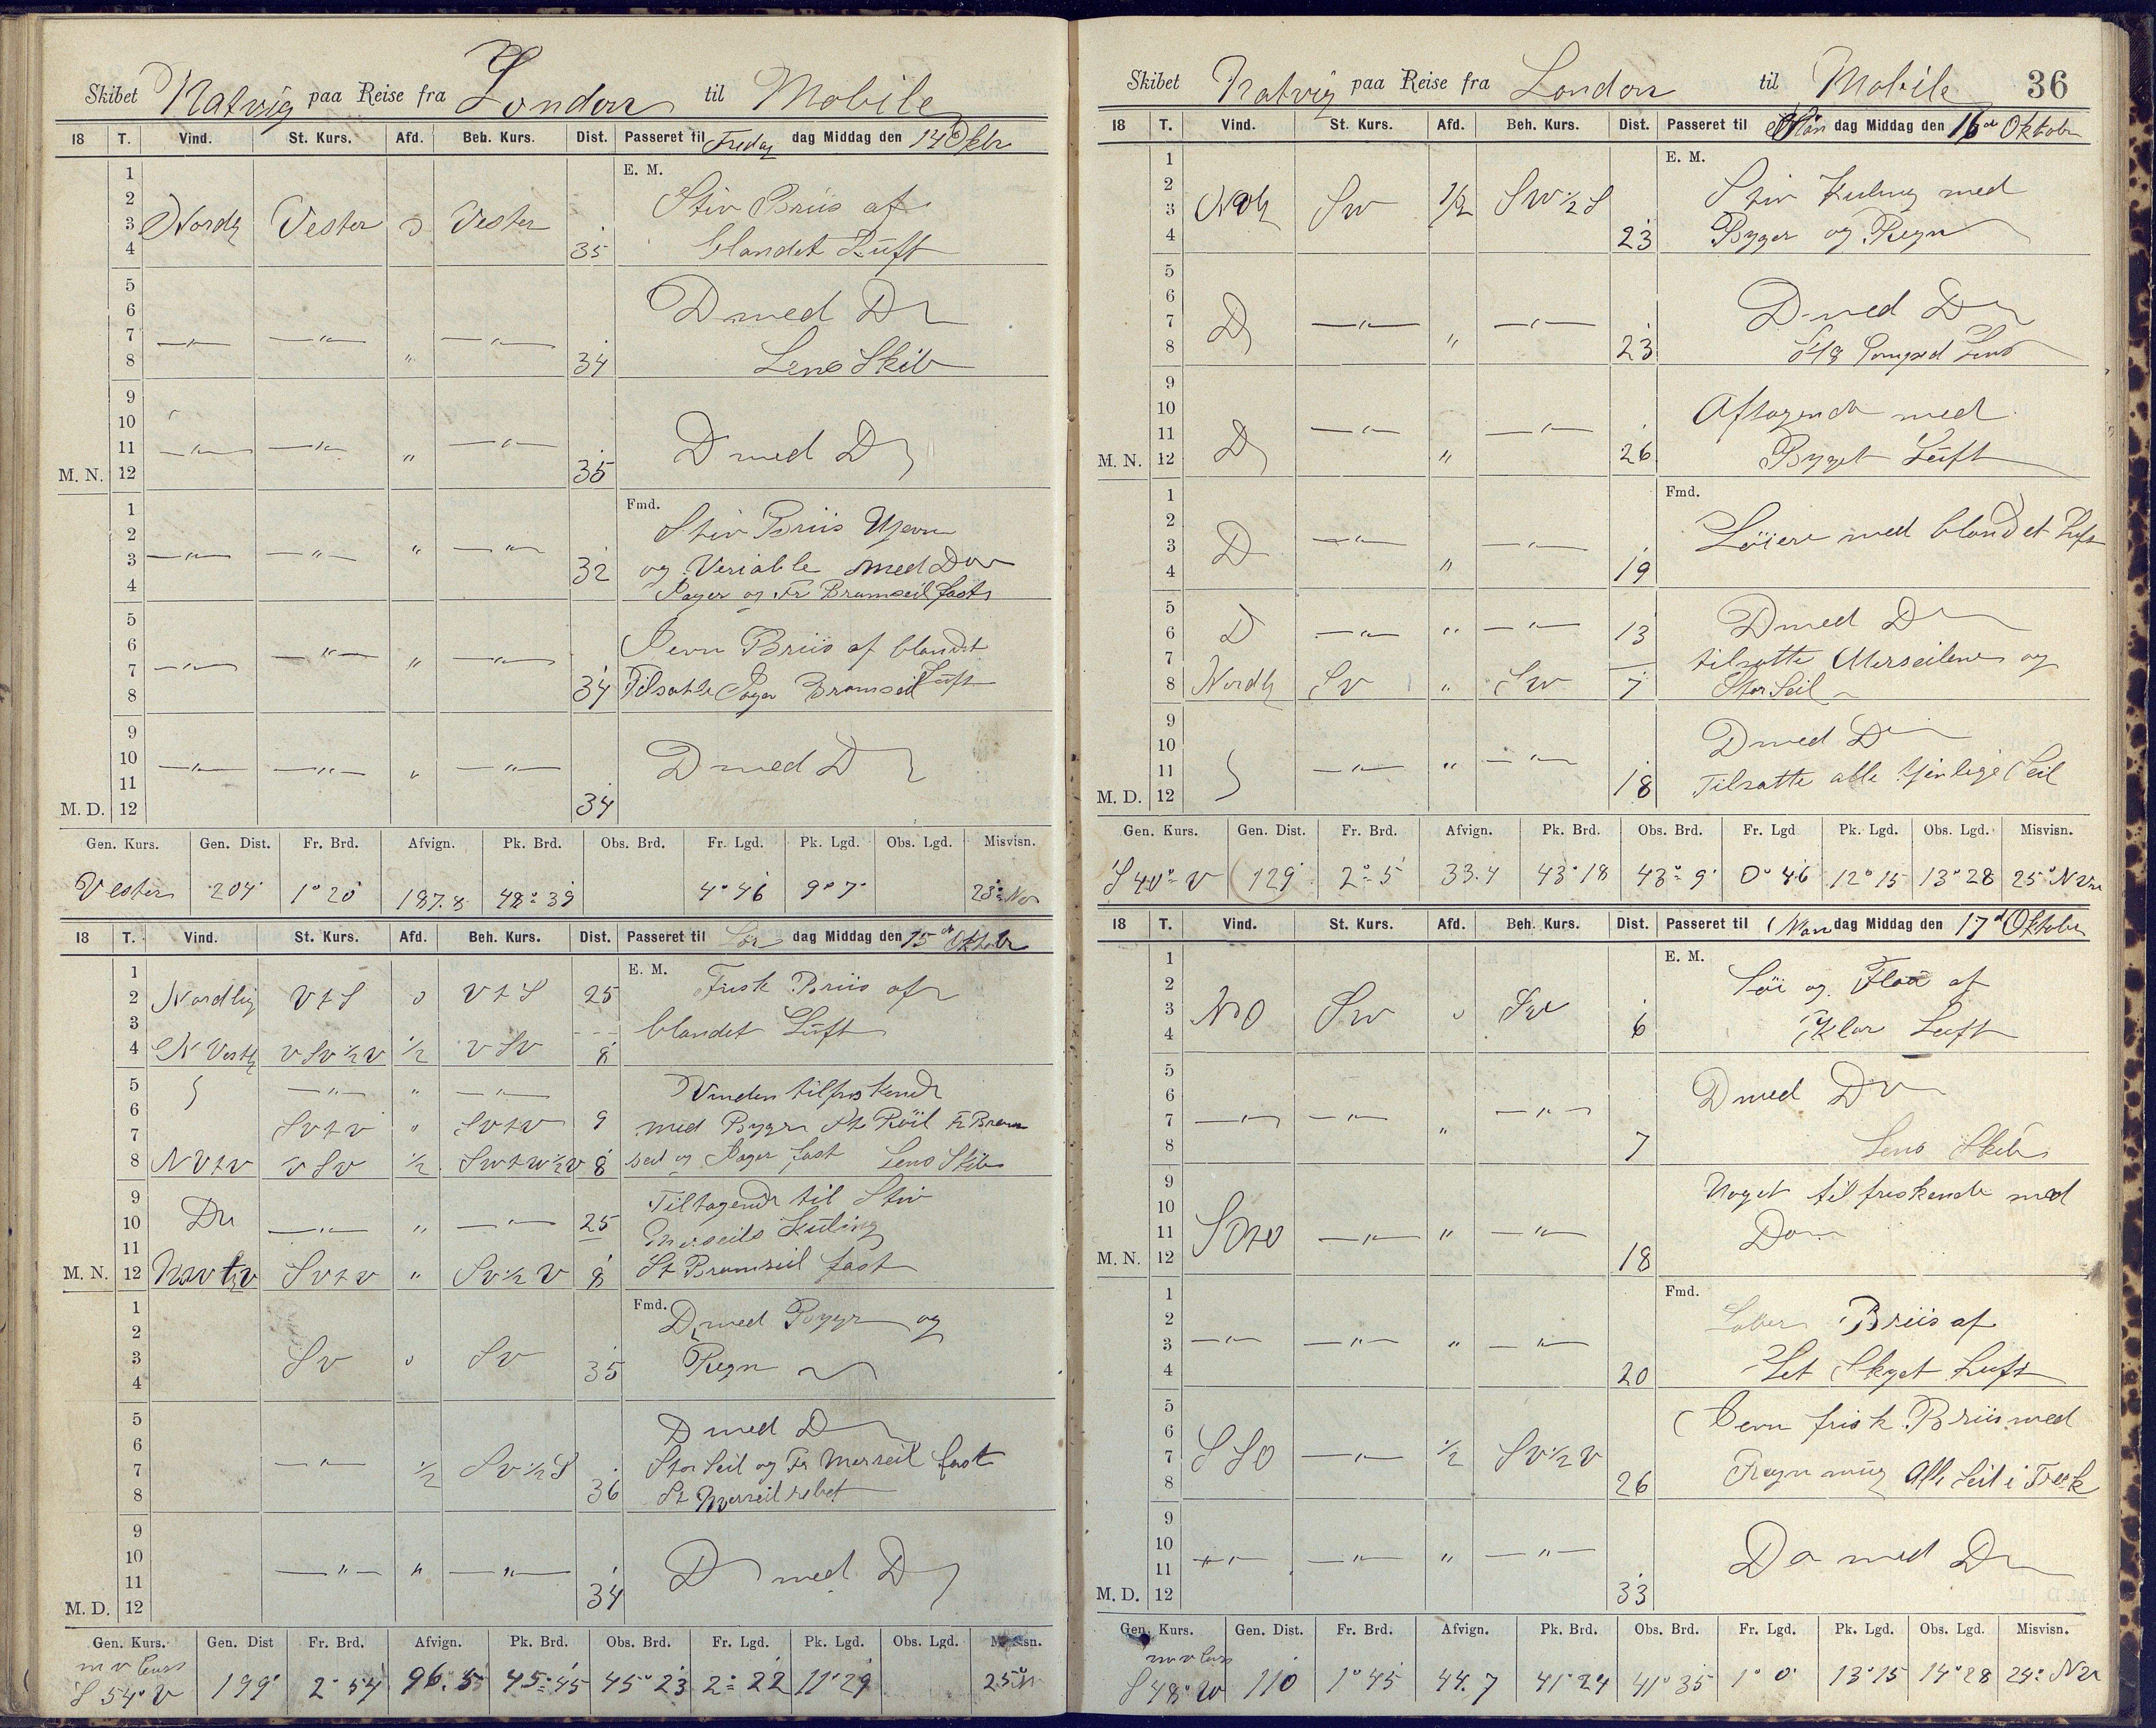 Skibet Natvig paa Reise fra London til Mobile
18 T. Vind. St. Kurs. Afd. Beh. Kurs. Dist. Passeret til Fredag dag Middag den 14 Oktbr
E. M.
1
2 Stiv Briis af
3 Nordl Vester 0 Vester
4 35 blandet Luft
5
6 D med D
7 —〃— —〃— —〃—
8 〃 34 Lens Skib
9
10
11 —〃— —〃— 〃 —〃— D med D
M. N. 12 35
Fmd.
1 Stiv Briis Ujevn
2
3 —〃— —〃— 〃 —〃— 32 og Veriable med Do
4 Jager og Fr Bramseil fast
5
6 Jevn Briis af blandet
7 —〃— —〃— 〃 —〃— Luft
8 34 Tilsatte Jager Bramseil
9
10 —〃— —〃— 〃 —〃— D med D
11
M. D. 12 34
Gen. Kurs. Gen. Dist. Fr. Brd. Afvign. Pk. Brd. Obs. Brd. Fr. Lgd. Pk. Lgd. Obs. Lgd. Misvisn.
Vester 204 1° 20 187.8 48° 39 4° 46 9° 7
18 T. Vind. St. Kurs. Afd. Beh. Kurs. Dist. Passeret til Lør dag Middag den 15 Oktobr
E. M.
1 Frisk Briis af
2 Nordlig V t S 0 V t S 25
3 blandet Luft
4 N Vestl V Sv 1/2 V 1/2 V SV 8
5 —〃— 〃 —〃— Vinden tilfriskende
6 Sv t v 〃 Sv t v 9 med Byger St Röil Fr Bram
7
8 N V t v V Sv 1/2 Sw t w 1/2 v 8 seil og Jager fast Lens Skib
9 Tiltagende til Stiv
10 Do —〃— 〃 —〃— 25 Merseils Kuling
11
M. N. 12 Sv t v 〃 Sv 1/2 V 8 St Bramseil fast
Fmd.
1 D med Byger og
2
3 Sv 0 Sv 35 Regn
4
5 D med D
6
7 —〃— 1/2 Sv 1/2 S Stor Seil og Fr Merseil fast
8 36 St Merseil rebet
9
10
11 —〃— 〃 —〃— D med D
M. D. 12 34
Gen. Kurs. Gen. Dist Fr. Brd. Afvign. Pk. Brd. Obs. Brd. Fr. Lgd. Pk. Lgd. Obs. Lgd. Misvisn.
S 54° V 199 2° 54 96.5 45° 45 45° 23 2° 22 11° 29 25°
Skibet Natvig paa Reise fra London til Mobile 36
18 T. Vind. St. Kurs. Afd. Beh. Kurs. Dist. Passeret til dag Middag den 16 Oktobr
E. M.
1
2 Stiv Kuling med
3 Sw 1/2 SW 1/2 S
4 23 Byger og Regn
5
6 D med D
7 D —〃— —〃—
8 〃 23 Pomped Lens
9
10 Aftagende med
11 D —〃— —〃—
M. N. 12 〃 26 Byget Luft
Fmd.
1
2 Löiere med blandet Luft
3 D —〃— —〃—
4 〃 19
5 D med D
6 D —〃— 〃 —〃— 13
7 tilsatte Merseilene og
8 Nordl Sv 〃 Sw 7 Stor Seil
9
10 D med D
11 —〃— 〃 —〃— Tilsatte alle Seil
M. D. 12 18
Gen. Kurs. Gen. Dist. Fr. Brd. Afvign. Pk. Brd. Obs. Brd. Fr. Lgd Pk. Lgd. Obs. Lgd. Misvisn.
S 40° V 129 2° 5 33.4 43° 18 43° 9 0° 46 12° 15 13° 28 25°
18 T. Vind. St. Kurs. Afd. Beh. Kurs. Dist. Passeret til Man dag Middag den 17 Oktober
E. M.
1
2 Löi og Flaa af
3 NO Sw 0 Sw
4 6 Klar Luft
5
6 D med D
7 —〃— —〃— —〃—
8 〃 7 Lens Skib
9 Noget tilfriskende med
10
11 —〃— 〃 —〃— Do
M. N. 12 18
Fmd.
1
2 Briis af
3 —〃— —〃— 〃 —〃—
4 20 Let Skyet Luft
5 Jevn frisk Briis med
6
7 S SO —〃— 1/2 Sv 1/2 V
8 26 Alle Seil i Træk
9
10 Do med D
11 —〃— —〃— 〃 —〃—
M. D. 12 33
Gen. Kurs. Gen. Dist. Fr. Brd. Afvign. Pk. Brd. Obs. Brd. Fr. Lgd. Pk. Lgd. Obs. Lgd. Misvisn.
S 48° W 110 1° 45 44.7 41° 24 41° 35 1° 0 13° 15 14° 28 24° NV